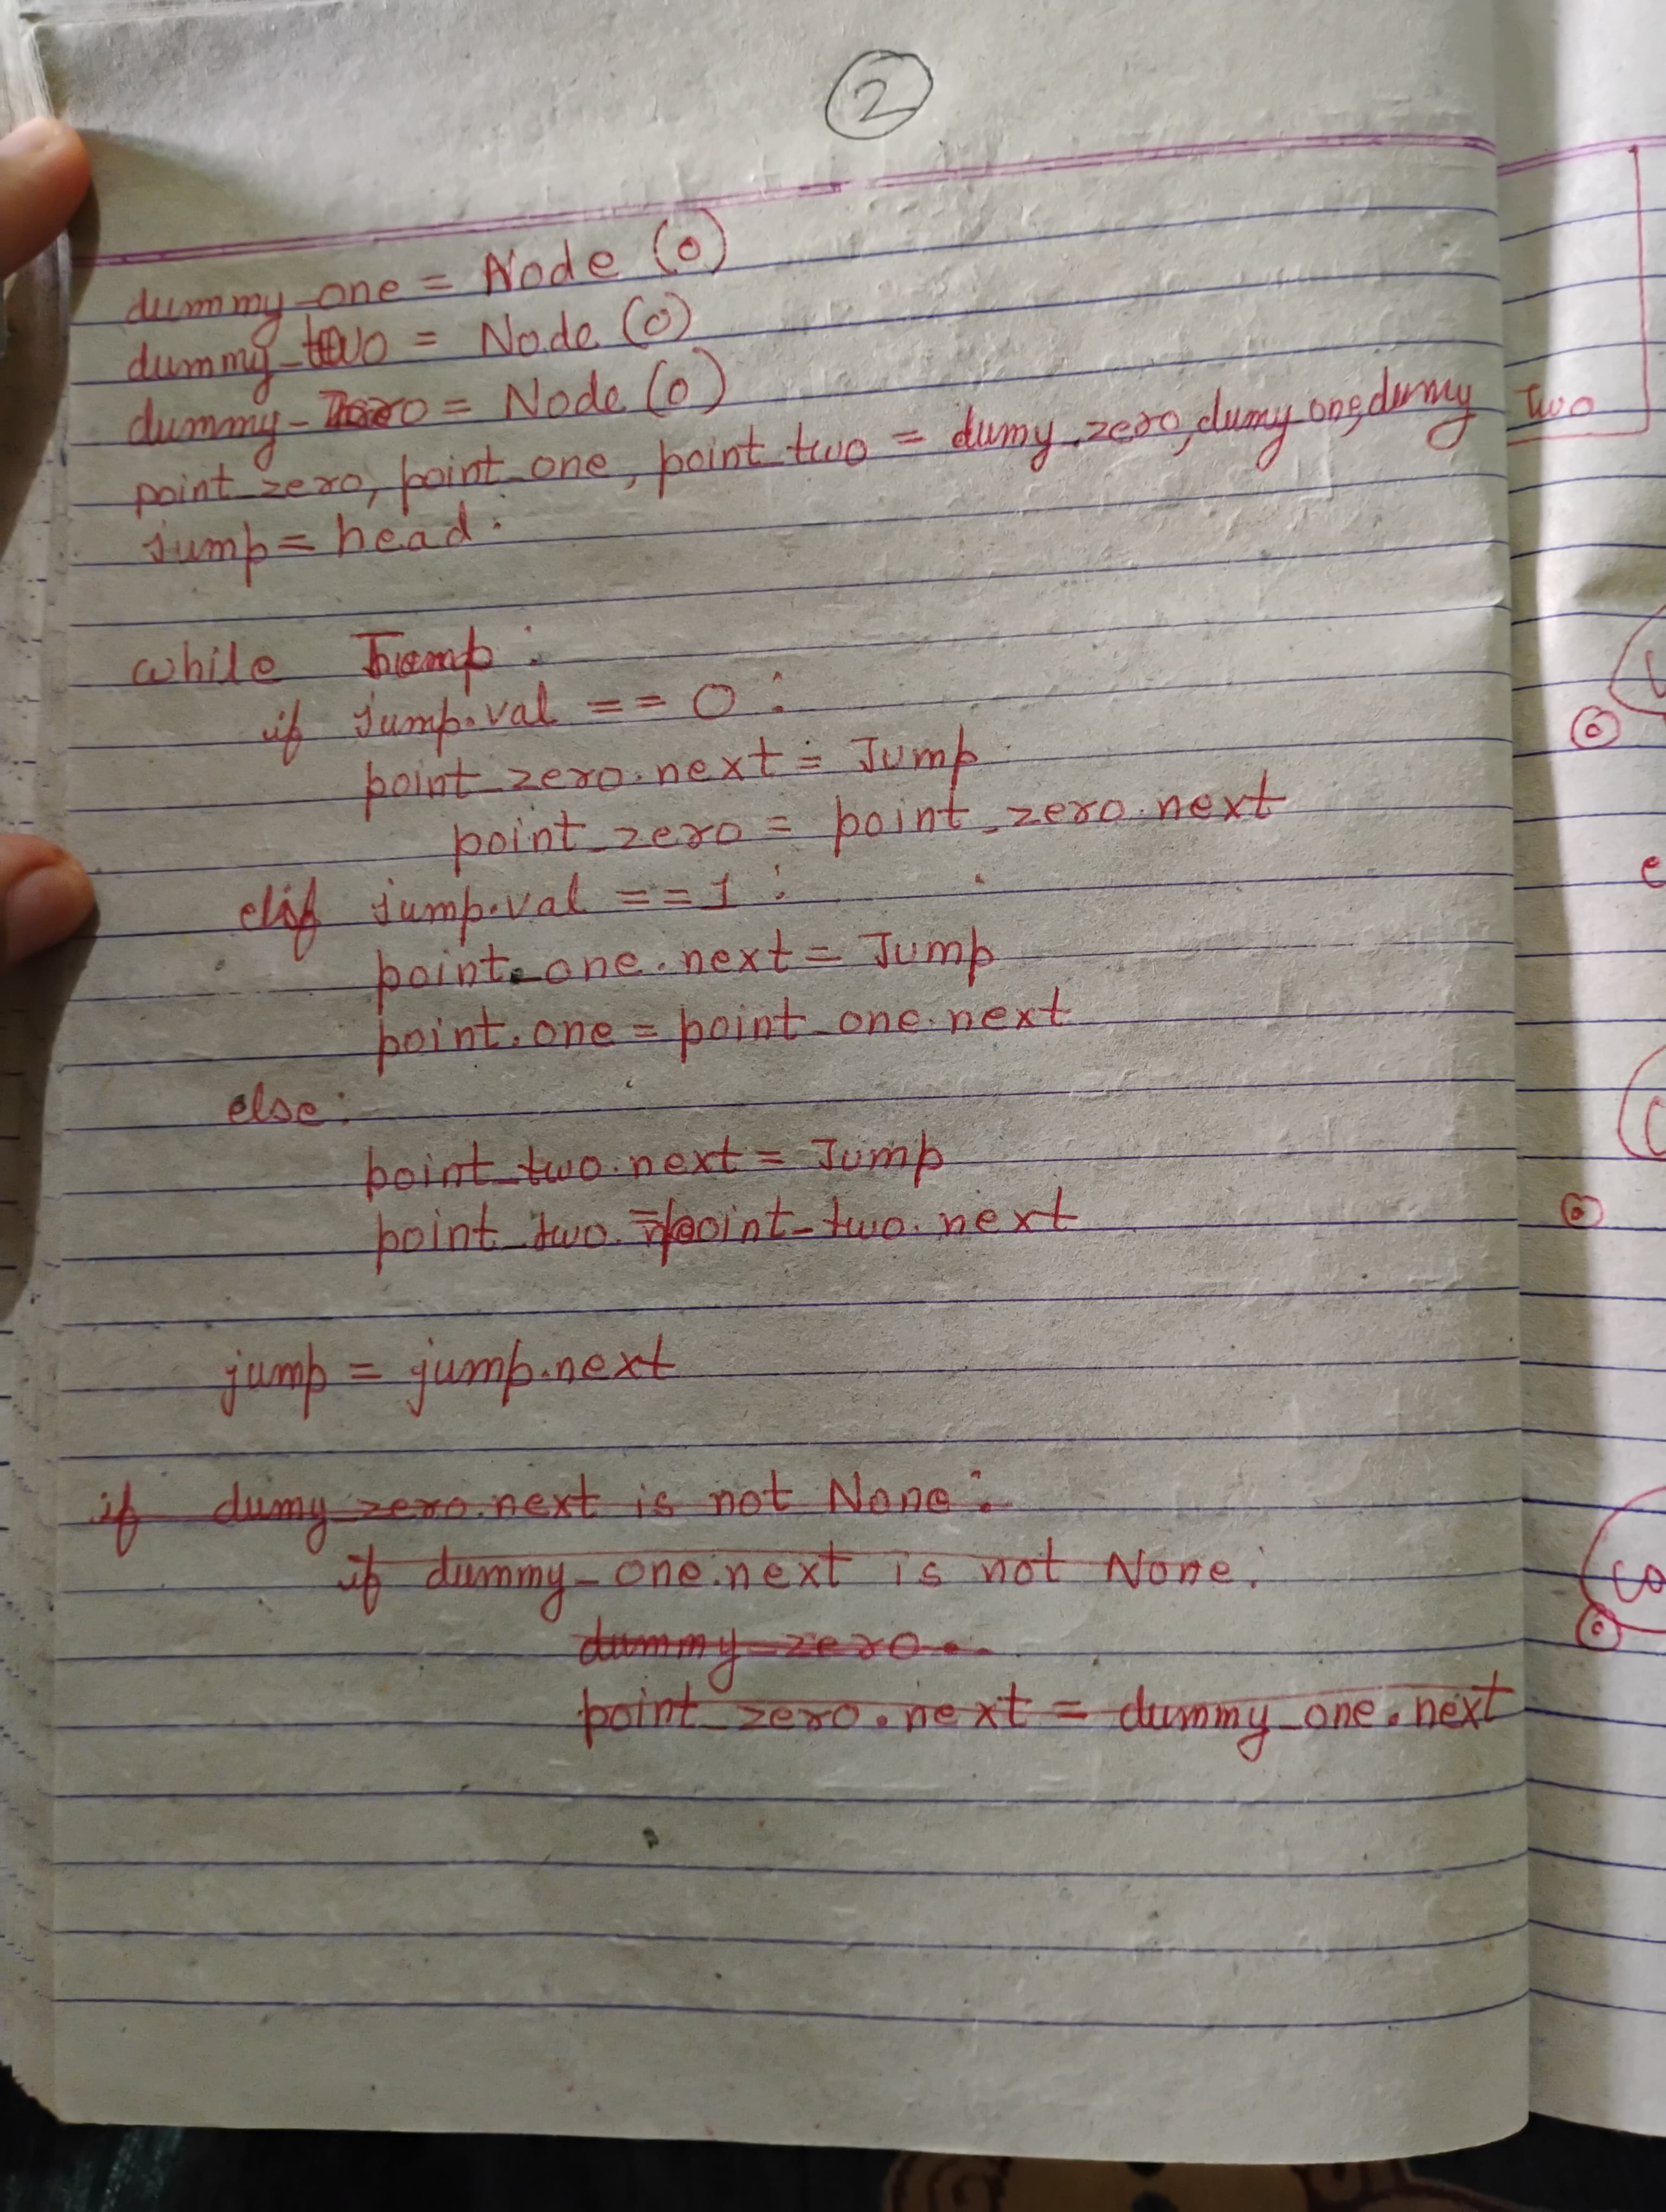 2
dummy_one = Node (0)
dummy_two = Node (0)
dummy_zero = Node (0)
point_zero, point_one, point_two = dumy_zero, dumy one, dummy two
Jump = head.
while Jump :
if Jump.val == 0 :
point_zero.next = Jump
point_zero = point_zero.next
elif Jump.val == 1 :
point_one.next = Jump
point.one = point_one.next
else:
point_two.next = Jump
point_two. = point_two.next
jump = jump.next
if dumy_zero.next is not None :
if dummy_one.next is not None:
dummy_zero.
point_zero.next = dummy_one.next